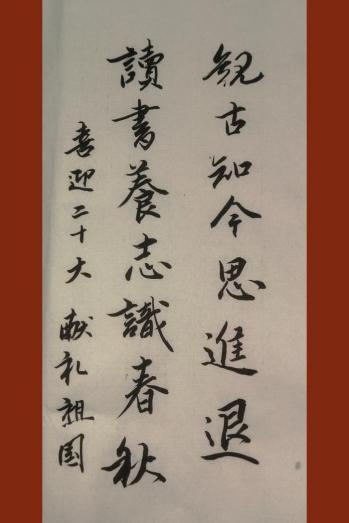 觀古知今思進退
讀書養志識春秋
喜迎二十大 献礼祖国